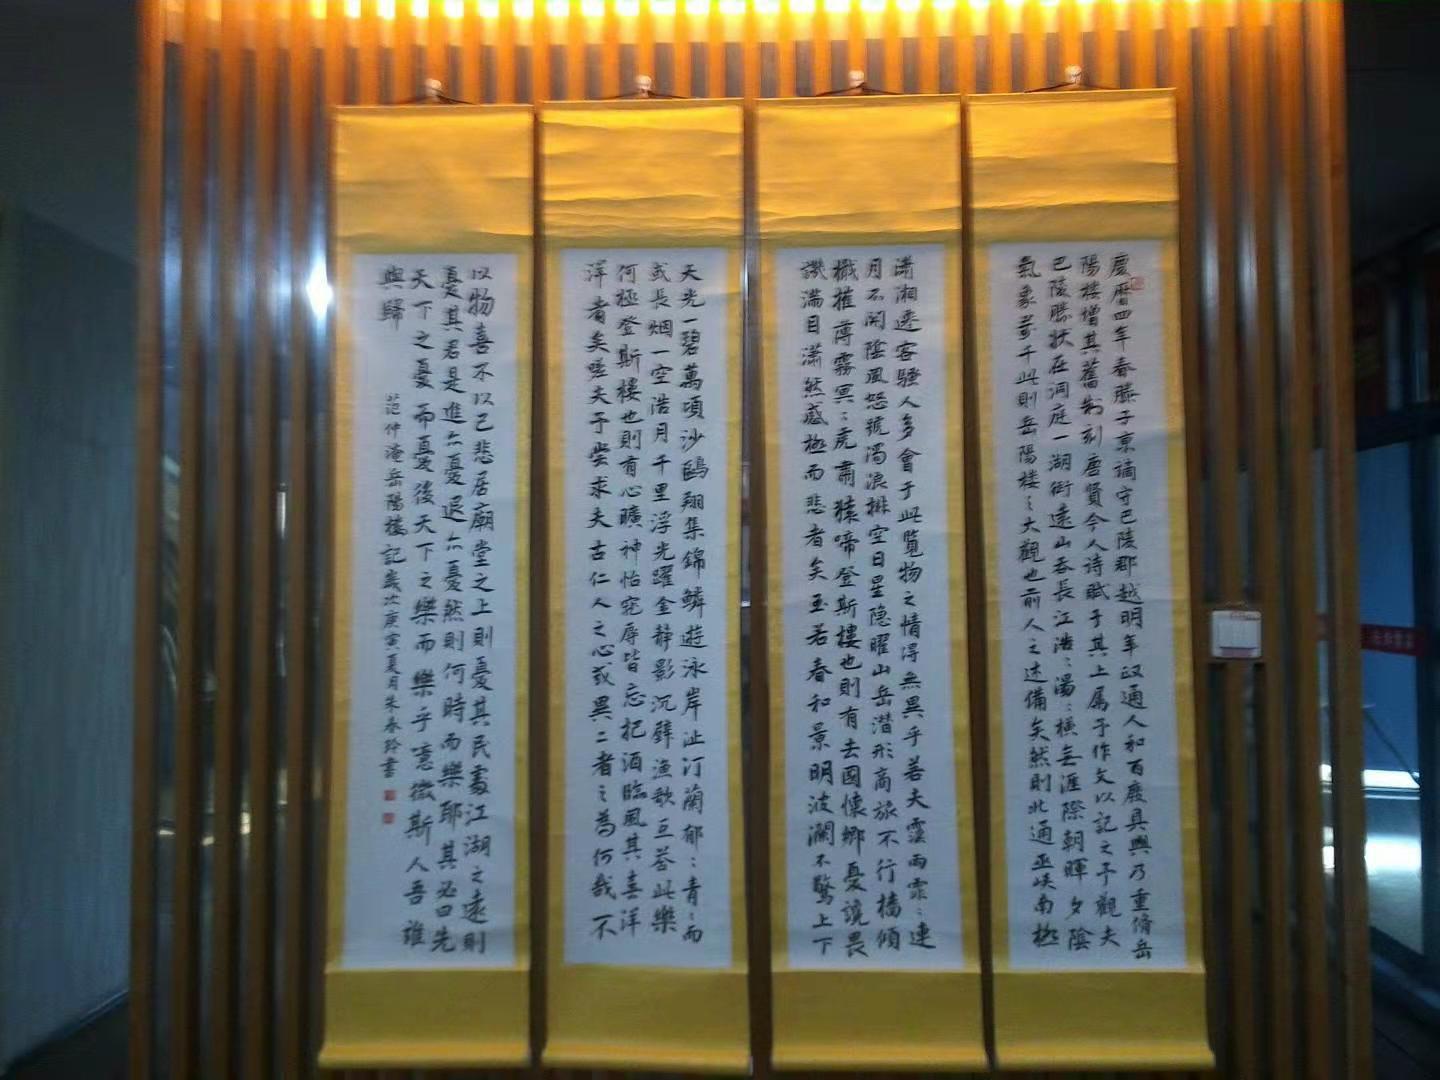 慶曆四年春滕子京謫守巴陵郡越明年政通人和百廢具興乃重脩岳
陽樓增其舊制刻唐賢今人诗賦于其上属予作文以記之予觀夫
巴陵勝狀在洞庭一湖銜遠山吞長江浩〻湯〻橫無涯際朝暉夕陰
氣象萬千此則岳陽樓之大觀也前人之述備矣然則北通巫峡南極
瀟湘遷客騷人多會于此覽物之情得無異乎若夫霪雨霏〻連
月不開陰風怒號濁浪排空日星隐曜山岳潜形商旅不行檣傾
檝摧薄霧冥〻虎肅猿啼登斯樓也則有去國懷鄉憂讒畏
譏滿目瀟然感極而悲者矣至若春和景明波瀾不驚上下
天光一碧萬頃沙鷗翔集錦鱗遊泳岸沚汀蘭郁〻青〻而
或長烟一空浩月千里浮光躍金静影沉璧漁歌互荅此樂
何極登斯樓也則有心曠神怡寵辱皆忘把酒臨風其喜洋
洋者矣嗟夫予嘗求夫古仁人之心或異二者之為何哉不
以物喜不以己悲居廟堂之上則憂其民處江湖之遠則
憂其君是進亦憂退亦憂然則何時而樂耶其必曰先
天下之憂而憂後天下之樂而樂乎噫微斯人吾誰
與歸 范仲淹岳陽樓記歲次庚寅夏月朱春玲書